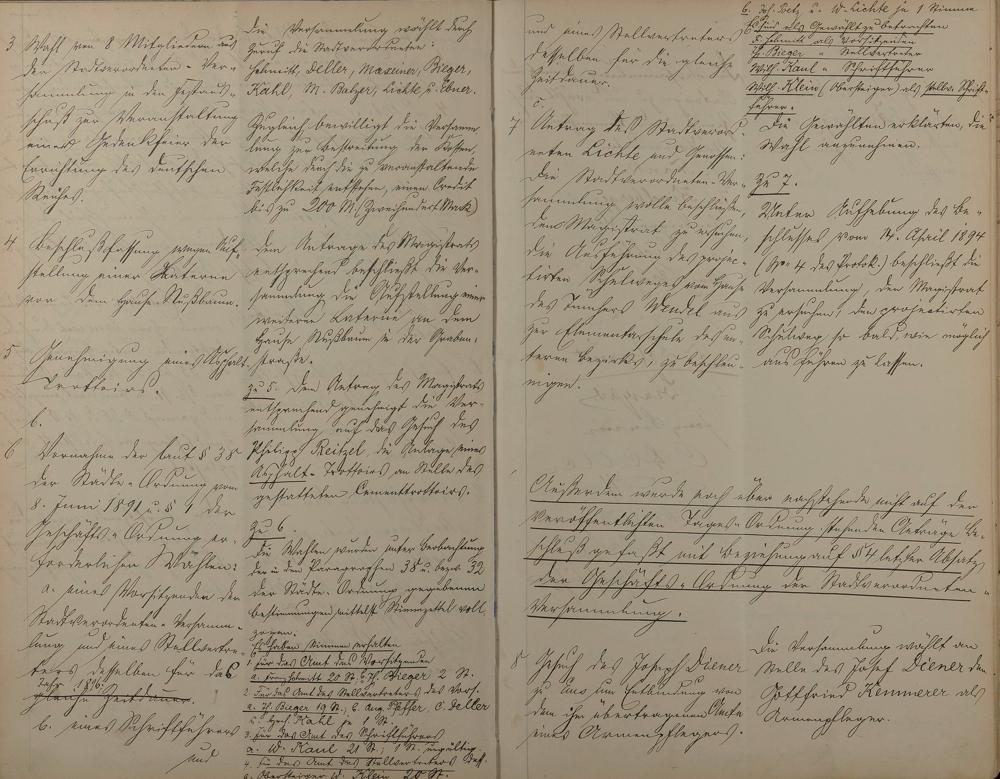 3 Wahl von 8 Mitgliedern aus
der Stadtverordneten-Ver-
sammlung in den Festaus-
schuß zur Veranstaltung
einer Gedenkfeier der
Errichtung des Deutschen
Reiches.
4 Beschlußfassung wegen Auf-
stellung einer Laterne
vor dem Hause Nußbaum.
5 Genehmigung eines Asphalt-
trottoirs.
6.
6 Vornahme der laut § 38
der Städte-Ordnung vom
8. Juni 1891 u. § 1 der
Geschäfts-Ordnung er-
forderlichen Wahlen:
a. eines Vorsitzenden der
Stadtverordneten-Versamm-
lung und eines Stellvertre-
ters desselben für das
Jahr 1896.
gleiche Zeitdauer,
b. eines Schriftführers
und
Die Versammlung wählt durch
Zuruf die Stadtverordneten:
Schmitt, Deller, Maxeiner, Bieger,
Kahl, M. Balzer, Lichte u. Ebner.
Zugleich bewilligt die Versamm-
lung zur Bestreitung der Kosten,
welche durch die zu veranstaltende
Festlichkeit entstehen, einen Credit
bis zu 200 M. (Zweihundert Mark)
Dem Antrage des Magistrats
entsprechend beschließt die Ver-
sammlung die Aufstellung einer
weiteren Laterne an dem
Hause Nußbaum in der Graben-
straße.
zu 5. Dem Antrag des Magistrats
entsprechend genehmigt die Ver-
sammlung auf das Gesuch des
Philipp Reitzel die Anlage eines
Asphalt-Trottoirs an Stelle des
gestatteten Cementtrottoirs.
Zu 6.
Die Wahlen wurden unter Beobachtung
der in den Paragraphen 38 u. bezw. 32
der Städte-Ordnung gegebenen
Bestimmungen mittelst Stimmzettel voll-
zogen.
Es haben Stimmen erhalten
1. für das Amt des Vorsitzenden
a. Schmitt 20 St. Th. Bieger 2 St.
2. Für das Amt des Stellvertreters des Vors.
a. Th. Bieger 19 St., C. Deller
Kahl je 1 St.
3. für das Amt des Schriftführers
a. W. Kaul 21 St.; 1 St. ungültig.
4. für das Amt des Stellvertreters
a. Obersteiger W. Klein 20 St.
und eines Stellvertreters
desselben für die gleiche
Zeitdauer.
7 Antrag des Stadtverord-
neten Lichte und Genossen:
Die Stadtverordneten-Ver-
sammlung wolle beschließen,
den Magistrat zu ersuchen,
die Ausführung des projec-
tirten Schulweges vom Hause
des Wendel aus
zur Elementarschule des un-
teren Bezirks, zu beschleu-
nigen.
b. Joh. u. W. Lichte je 1 Stimme
Es sind als Gewählt zu betrachten
Schmitt als Vorsitzenden
Th. Bieger " Stellvertreter
Wilh. Kaul " Schriftführer
Wilh. Klein (Obersteiger) als stellv. Schrift-
führer.
Die Gewählten erklärten, die
Wahl anzunehmen.
Zu 7.
Unter Aufhebung des Be-
schlusses vom 14. April 1894
(No 4 des Protok.) beschließt die
Versammlung, den Magistrat
zu ersuchen, den projectirten
Schulweg so bald wie möglich
ausführen zu lassen.
Außerdem wurde noch über nachstehende nicht auf der
veröffentlichten Tages-Ordnung stehenden Anträge Be-
schluß gefaßt mit Beziehung auf § 4 letzter Absatz
der Geschäfts-Ordnung der Stadtverordneten-
Versammlung.
8 Gesuch des Joseph Diener
zu Ems um Entbindung von
dem ihm übertragenen Amte
eines Armenpflegers.
Die Versammlung wählt an
Stelle des Josef Diener den
Gottfried Kemmerer als
Armenpfleger.